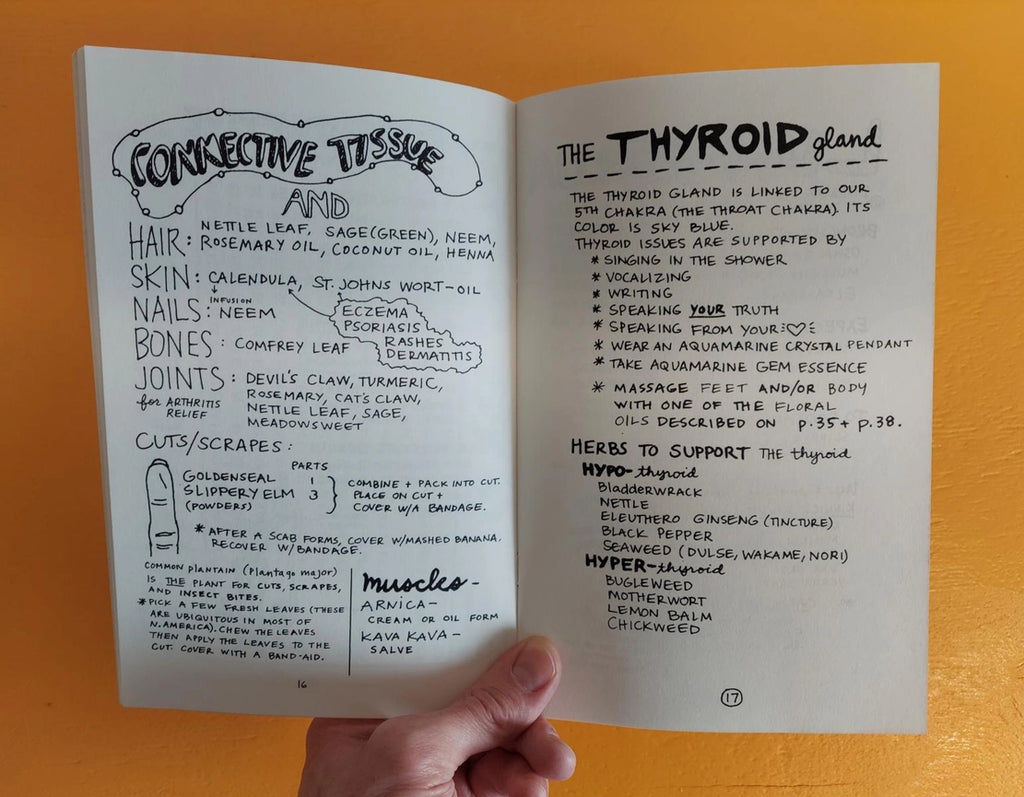 CONNECTIVE TISSUE
AND
HAIR: NETTLE LEAF, SAGE(GREEN), NEEM,
ROSEMARY OIL, COCONUT OIL, HENNA
SKIN: CALENDULA, ST. JOHNS WORT-OIL
INFUSION
NAILS: NEEM
ECZEMA
PSORIASIS
RASHES
DERMATITIS
BONES: COMFREY LEAF
JOINTS: DEVIL'S CLAW, TURMERIC,
for ARTHRITIS RELIEF
ROSEMARY, CAT'S CLAW,
NETTLE LEAF, SAGE,
MEADOWSWEET
CUTS/SCRAPES:
PARTS
GOLDENSEAL 1
SLIPPERY ELM 3
(POWDERS)
COMBINE + PACK INTO CUT.
PLACE ON CUT +
COVER W/A BANDAGE.
* AFTER A SCAB FORMS, COVER W/MASHED BANANA,
RECOVER W/BANDAGE.
COMMON PLANTAIN (Plantago major)
IS THE PLANT FOR CUTS, SCRAPES,
AND INSECT BITES.
* PICK A FEW FRESH LEAVES (THESE
ARE UBIQUITOUS IN MOST OF
N.AMERICA). CHEW THE LEAVES
THEN APPLY THE LEAVES TO THE
CUT. COVER WITH A BAND-AID.
muscles-
ARNICA-
CREAM OR OIL FORM
KAVA KAVA-
SALVE
16
THE THYROID gland
THE THYROID GLAND IS LINKED TO OUR
5TH CHAKRA (THE THROAT CHAKRA). ITS
COLOR IS SKY BLUE.
THYROID ISSUES ARE SUPPORTED BY
* SINGING IN THE SHOWER
* VOCALIZING
* WRITING
* SPEAKING YOUR TRUTH
* SPEAKING FROM YOUR ♡
* WEAR AN AQUAMARINE CRYSTAL PENDANT
* TAKE AQUAMARINE GEM ESSENCE
* MASSAGE FEET AND/OR BODY
WITH ONE OF THE FLORAL
OILS DESCRIBED ON p.35+ p.38.
HERBS TO SUPPORT THE thyroid
HYPO-thyroid
BladdeRWRACK
NETTLE
ELEUTHERO GINSENG (TINCTURE)
BLACK PEPPER
SEAWEED (DULSE, WAKAME, NORI)
HYPER-thyroid
BUGLEWEED
MOTHERWORT
LEMON BALM
CHICKWEED
17